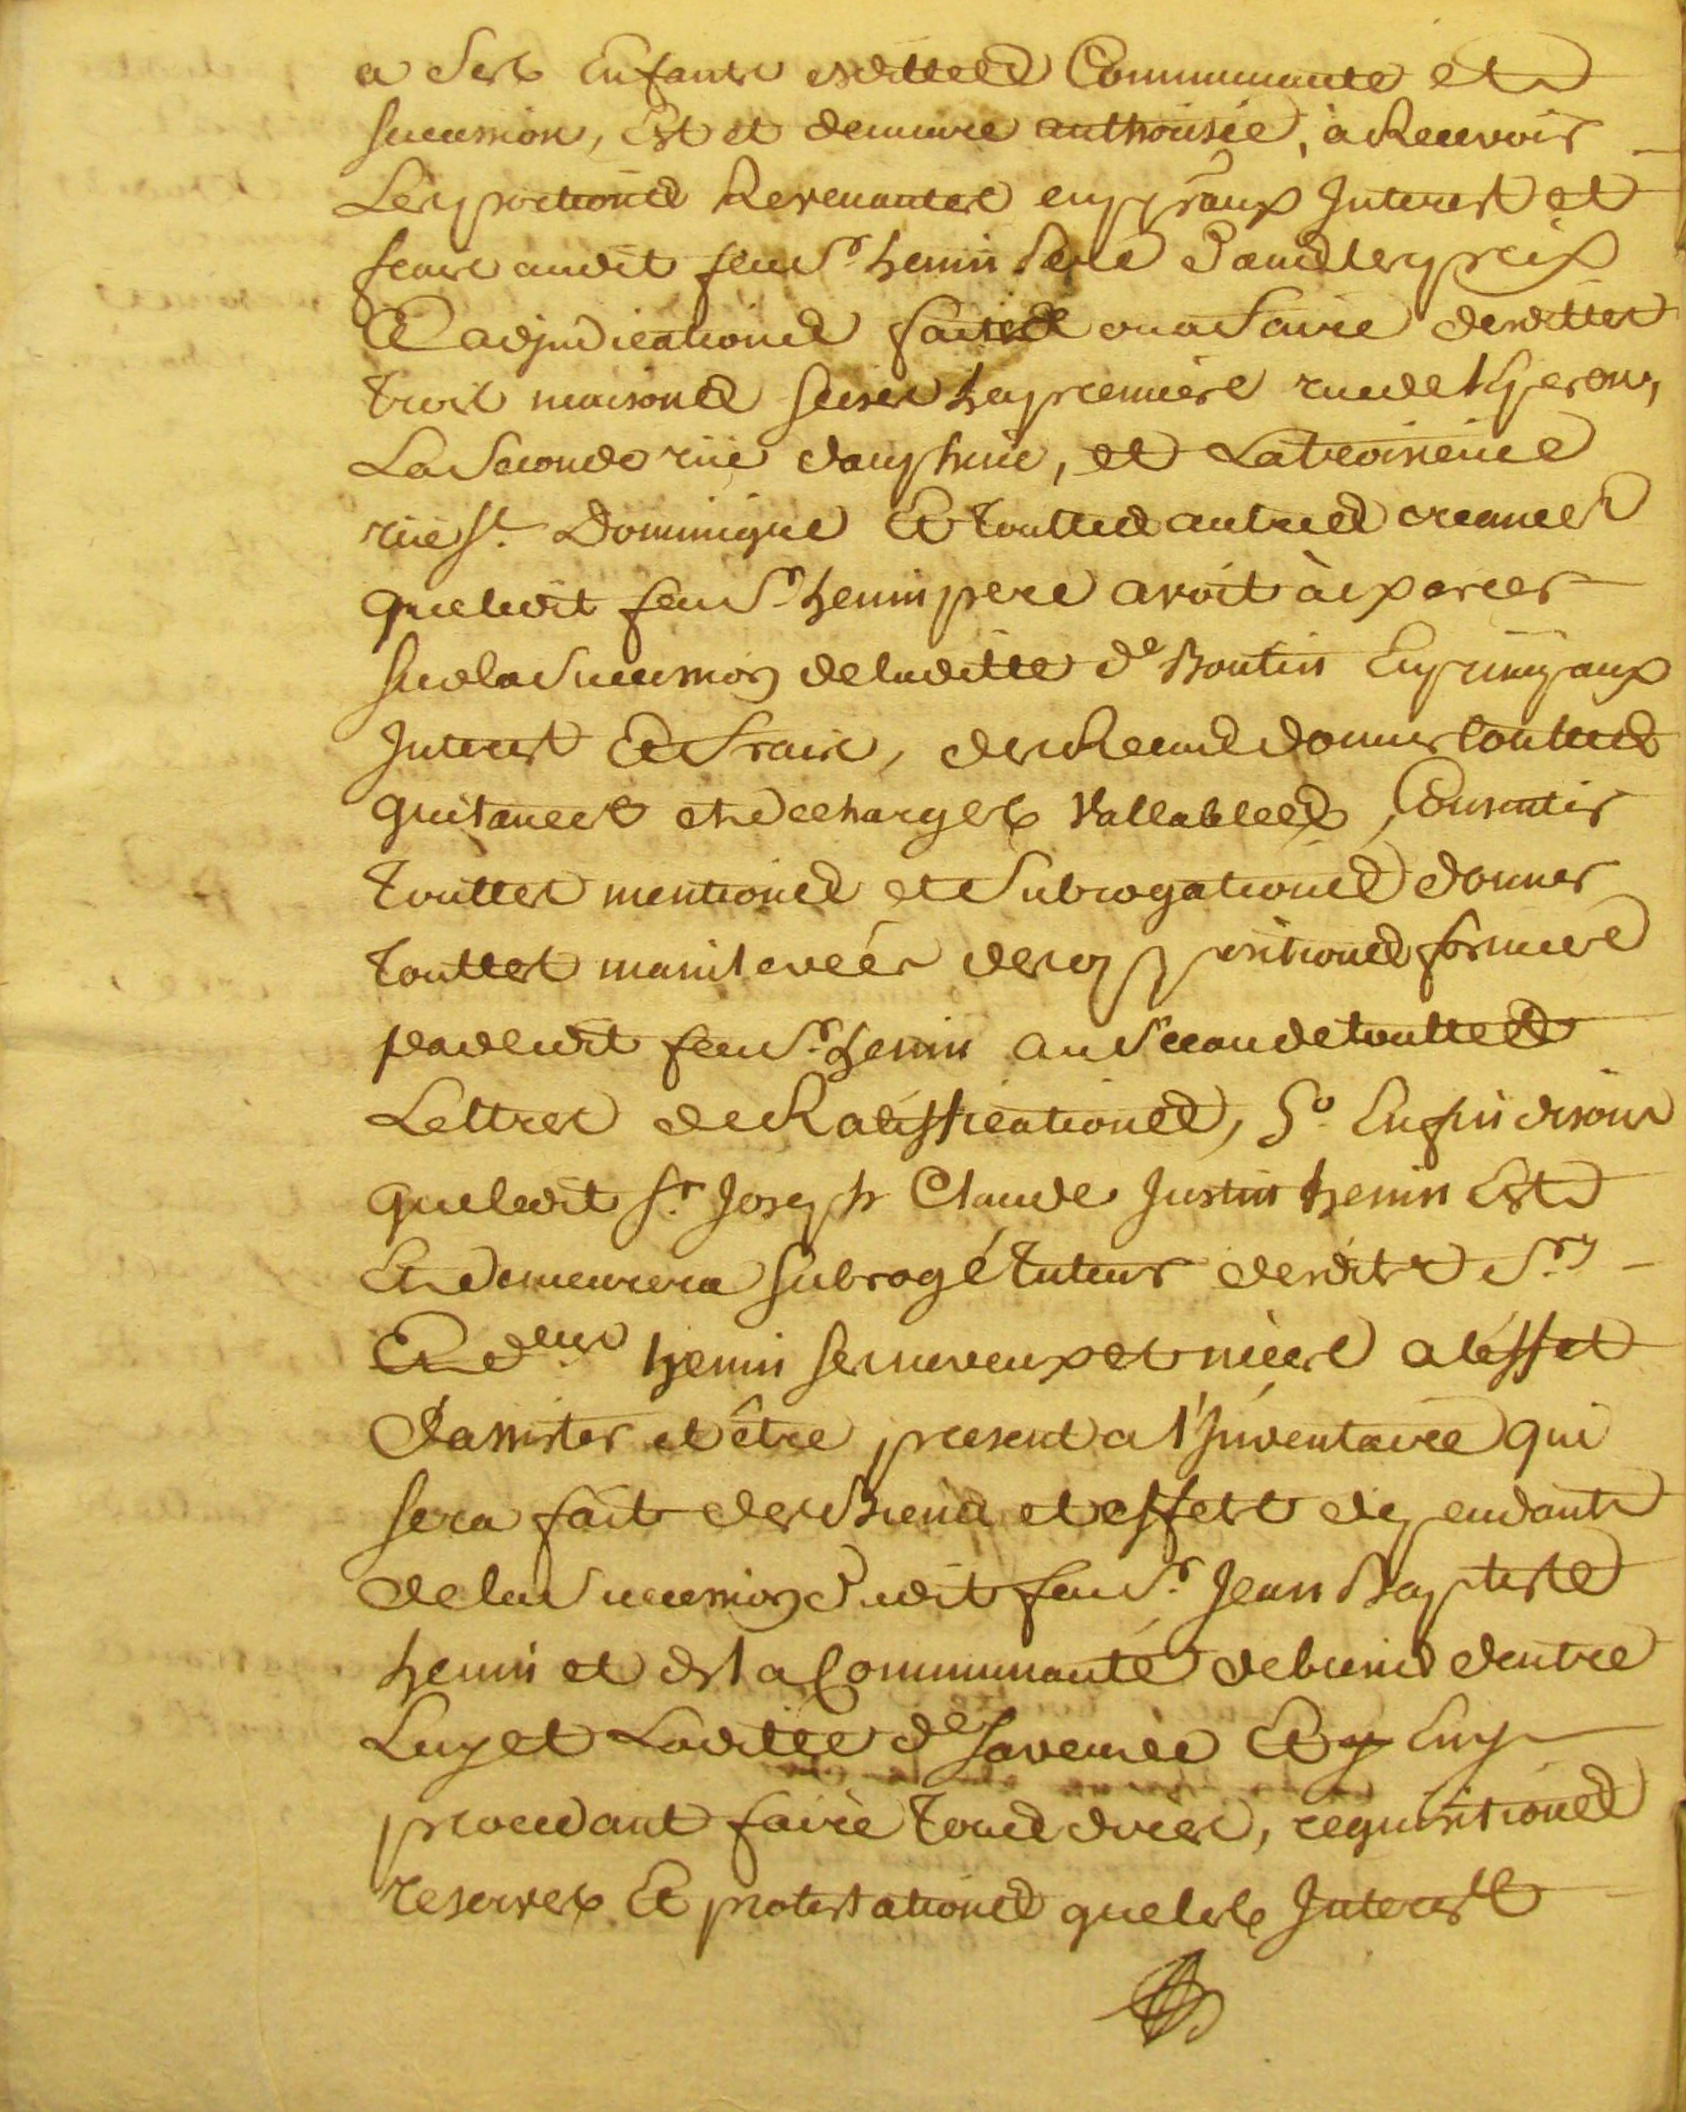 a Ses Enfants esdittes Communauté et
succession, Est et demeure authorisée, à Recevoir
Les portions Revenantes en p.raux Interest et
frais audit feu S.r henin Pere dans les prix
Et adjudications faites ou a faire desdittes
trois maisons scises la premiere rue de
La Seconde rüe dauphine, et La troisieme
rüe S.t Dominique Et touttes autres creances
que ledit feu S.r henin pere avoit à exercer
sur la Succession de laditte d.e Boutin En principaux
Interest Et frais, des Recus donner touttes
quitances et decharges Vallables, Consentir
touttes mentions et Subrogations donner
touttes mainlevées des oppositions formées
par ledit feu S.r henin au Sceau de touttes
Lettres de Ratiffications, 5.o Enfin disons
que ledit S.r Joseph Claude Justin henin Est
Et demeurera subrogé tuteur desdits S.rs
Et d.elles henin ses neveux et niéces a l'éffet
d'assister et être present a l'Inventaire qui
sera fait des Biens et effets dependants
de la Succession dudit feu S.r Jean Baptiste
henin et de la Communauté de biens d'entre
Luy et Laditte d.e sa veuve Et y En
procedant faire tous dires, requisitions
reserves Et protestations que les Interests